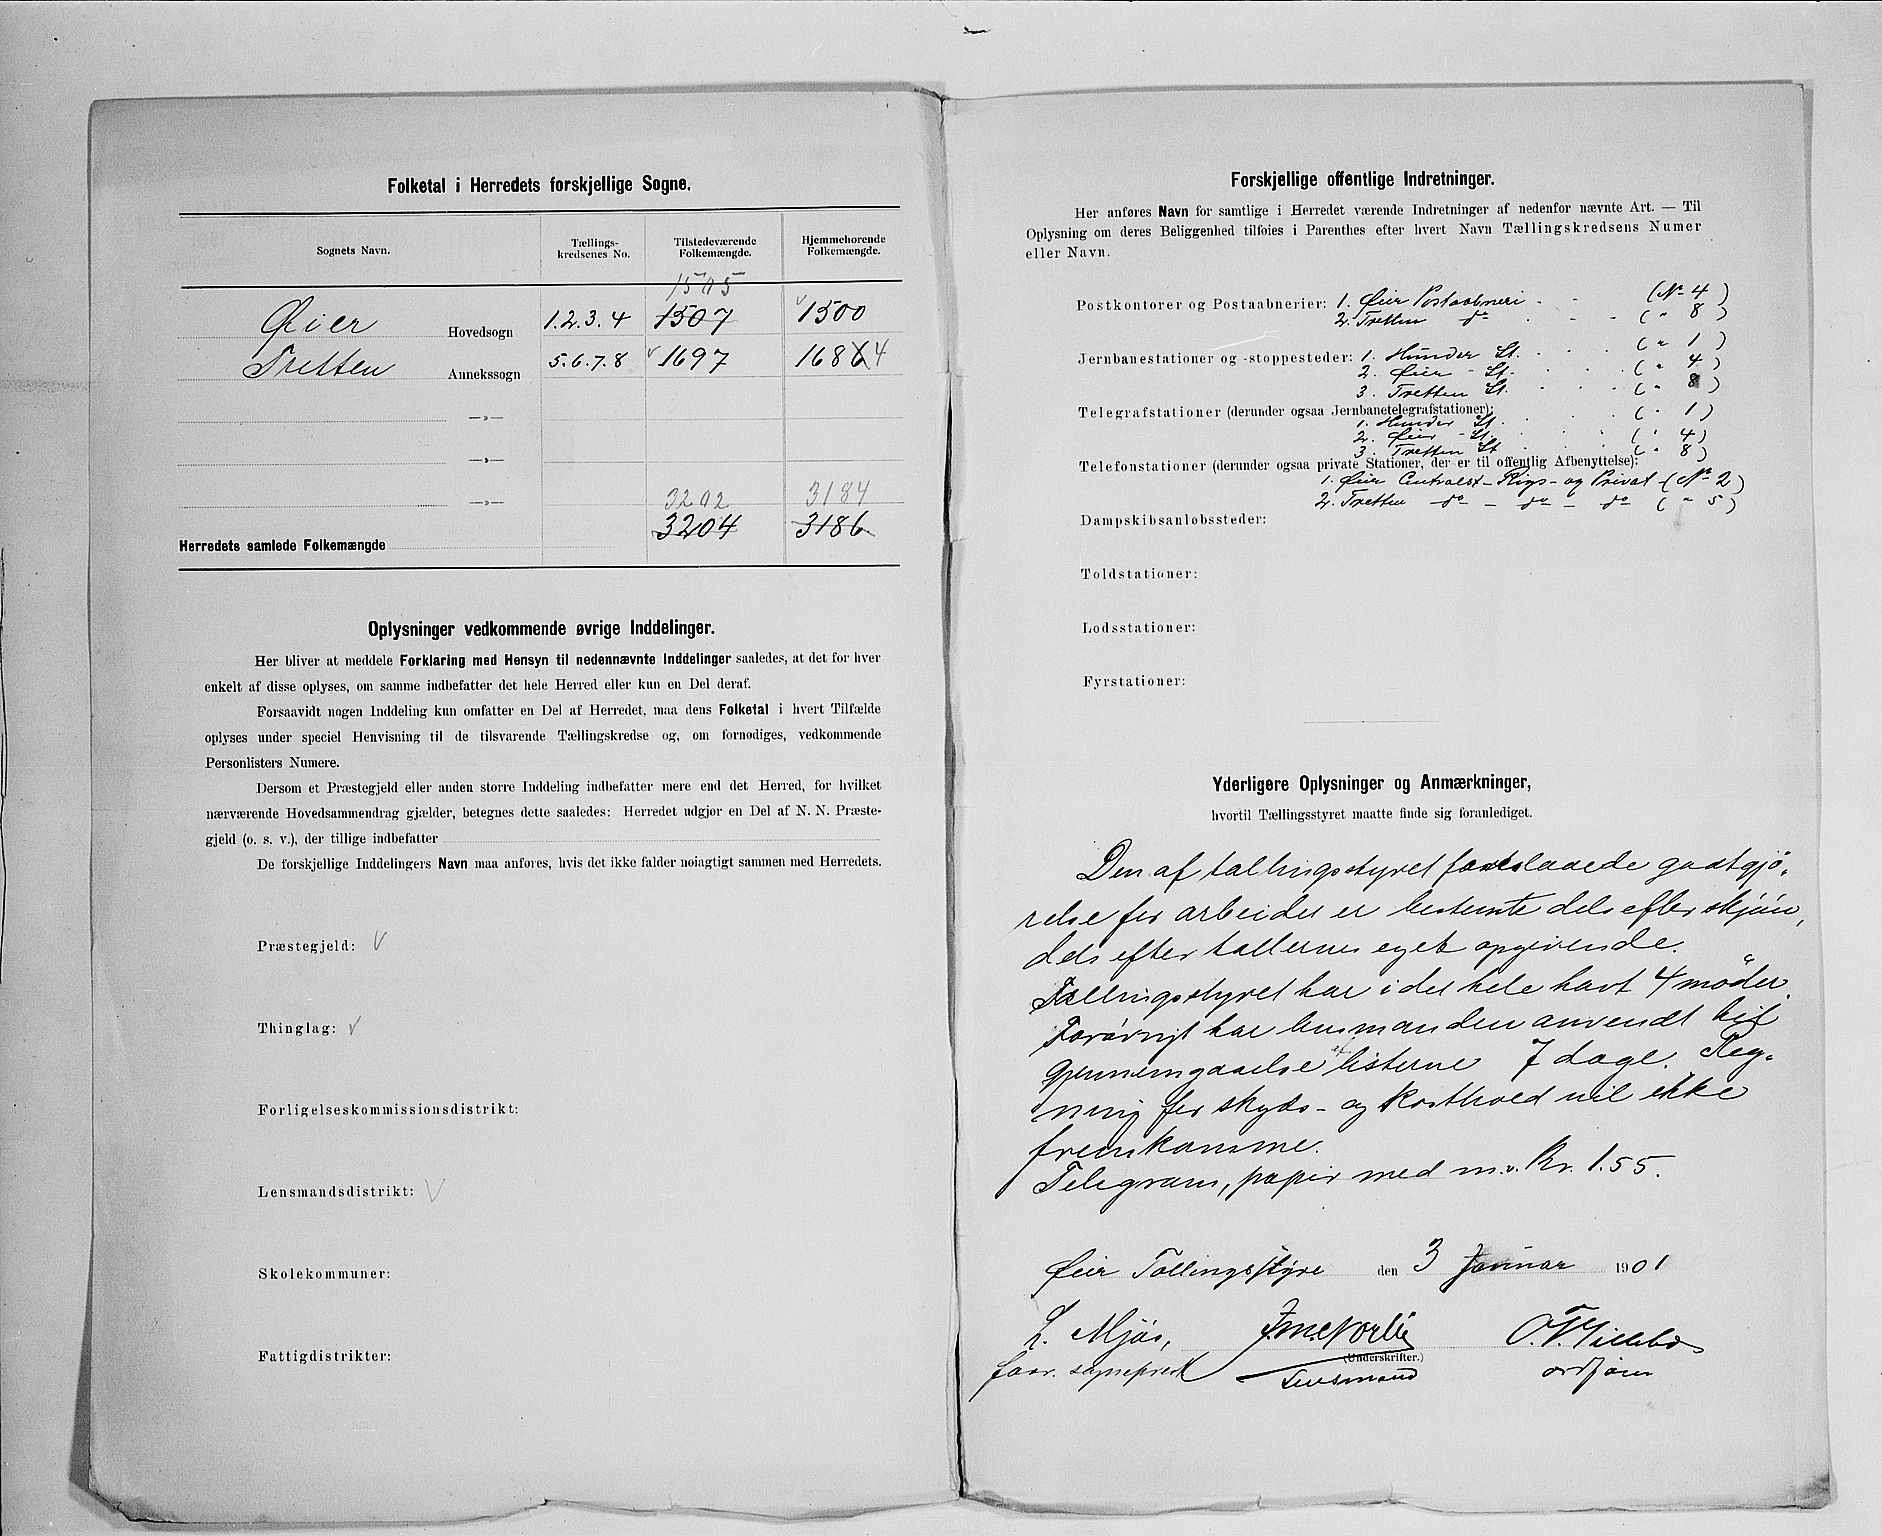 Folketal i Herredets forskjellige Sogne.
Sognets Navn.
Tællings-
kredsenes No.
Tilstedeværende
Folkemængde.
Hjemmehørende
Folkemængde.
1505
Øier Hovedsogn 1.2.3.4 1507 1500
Tretten Annekssogn 5.6.7.8 1697 1686 4
—»—
—»—
3202 3184
—»—
3204 3186
Herredets samlede Folkemængde
Oplysninger vedkommende øvrige Inddelinger.
Her bliver at meddele Forklaring med Hensyn til nedennævnte Inddelinger saaledes, at det for hver
enkelt af disse oplyses, om samme indbefatter det hele Herred eller kun en Del deraf.
Forsaavidt nogen Inddeling kun omfatter en Del af Herredet, maa dens Folketal i hvert Tilfælde
oplyses under speciel Henvisning til de tilsvarende Tællingskredse og, om fornødiges, vedkommende
Personlisters Numere.
Dersom et Præstegjeld eller anden større Inddeling indbefatter mere end det Herred, for hvilket
nærværende Hovedsammendrag gjælder, betegnes dette saaledes: Herredet udgjør en Del af N. N. Præste-
gjeld (o. s. v.), der tillige indbefatter
De forskjellige Inddelingers Navn maa anføres, hvis det ikke falder nøiagtigt sammen med Herredets.
Præstegjeld: v
Thinglag: v
Forligelseskommissionsdistrikt:
Lensmandsdistrikt: v
Skolekommuner:
Fattigdistrikter:
Forskjellige offentlige Indretninger.
Her anføres Navn for samtlige i Herredet værende Indretninger af nedenfor nævnte Art. — Til
Oplysning om deres Beliggenhed tilføies i Parenthes efter hvert Navn Tællingskredsens Numer
eller Navn.
Postkontorer og Postaabnerier: 1. Øier Postaabneri - - (No 4)
2. Tretten do - - (" 8)
Jernbanestationer og -stoppesteder: 1. Hunder St. - - (" 1)
2. Øier - St. - - (" 4)
3. Tretten St. - - (" 8)
Telegrafstationer (derunder ogsaa Jernbanetelegrafstationer):
1. Hunder St. (" 1)
2. Øier - St. (" 4)
3. Tretten St. (" 8)
Telefonstationer (derunder ogsaa private Stationer, der er til offentlig Afbenyttelse):
1. Øier Centralst - Rigs - og Privat (No 2)
2. Tretten do - do - do (" 5)
Dampskibsanløbssteder:
Toldstationer:
Lodsstationer:
Fyrstationer:
Yderligere Oplysninger og Anmærkninger,
hvortil Tællingsstyret maatte finde sig foranlediget.
Den af tællingsstyret foreslaaede godtgjø-
relse for arbeidet er bestemte dels efter skjøn,
dels efter tællernes eget opgivende.
Tællingsstyret har i det hele havt 4 møder.
Forøvrigt har lensmanden anvendt til
Gjennemgaaelse af listerne 7 dage. Reg-
ning for skyds- og kosthold vil ikke
fremkomme.
Telegram, papir med m.v. Kr. 1.55.
Øier Tællingsstyre den 3 Januar 1901
L. Mjøs, O. T. Lillebo
(Underskrifter.)
sogneprest Lensmand ordfører